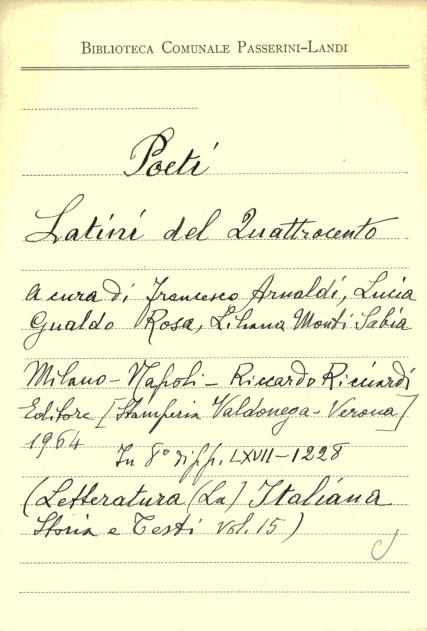 BIBLIOTECA COMUNALE PASSERINI-LANDI
Poeti
Latini del Quattrocento
A cura di Francesco Arnaldi, Lucia
Gualdo Rosa, Liliana Monti Sabia
Milano - Napoli - Riccardo Ricciardi
Editore [Stamperia Valdonega - Verona]
1964
In 8° di pp. LXVII-1228
(Letteratura (La) Italiana
Storia e Testi Vol. 15)